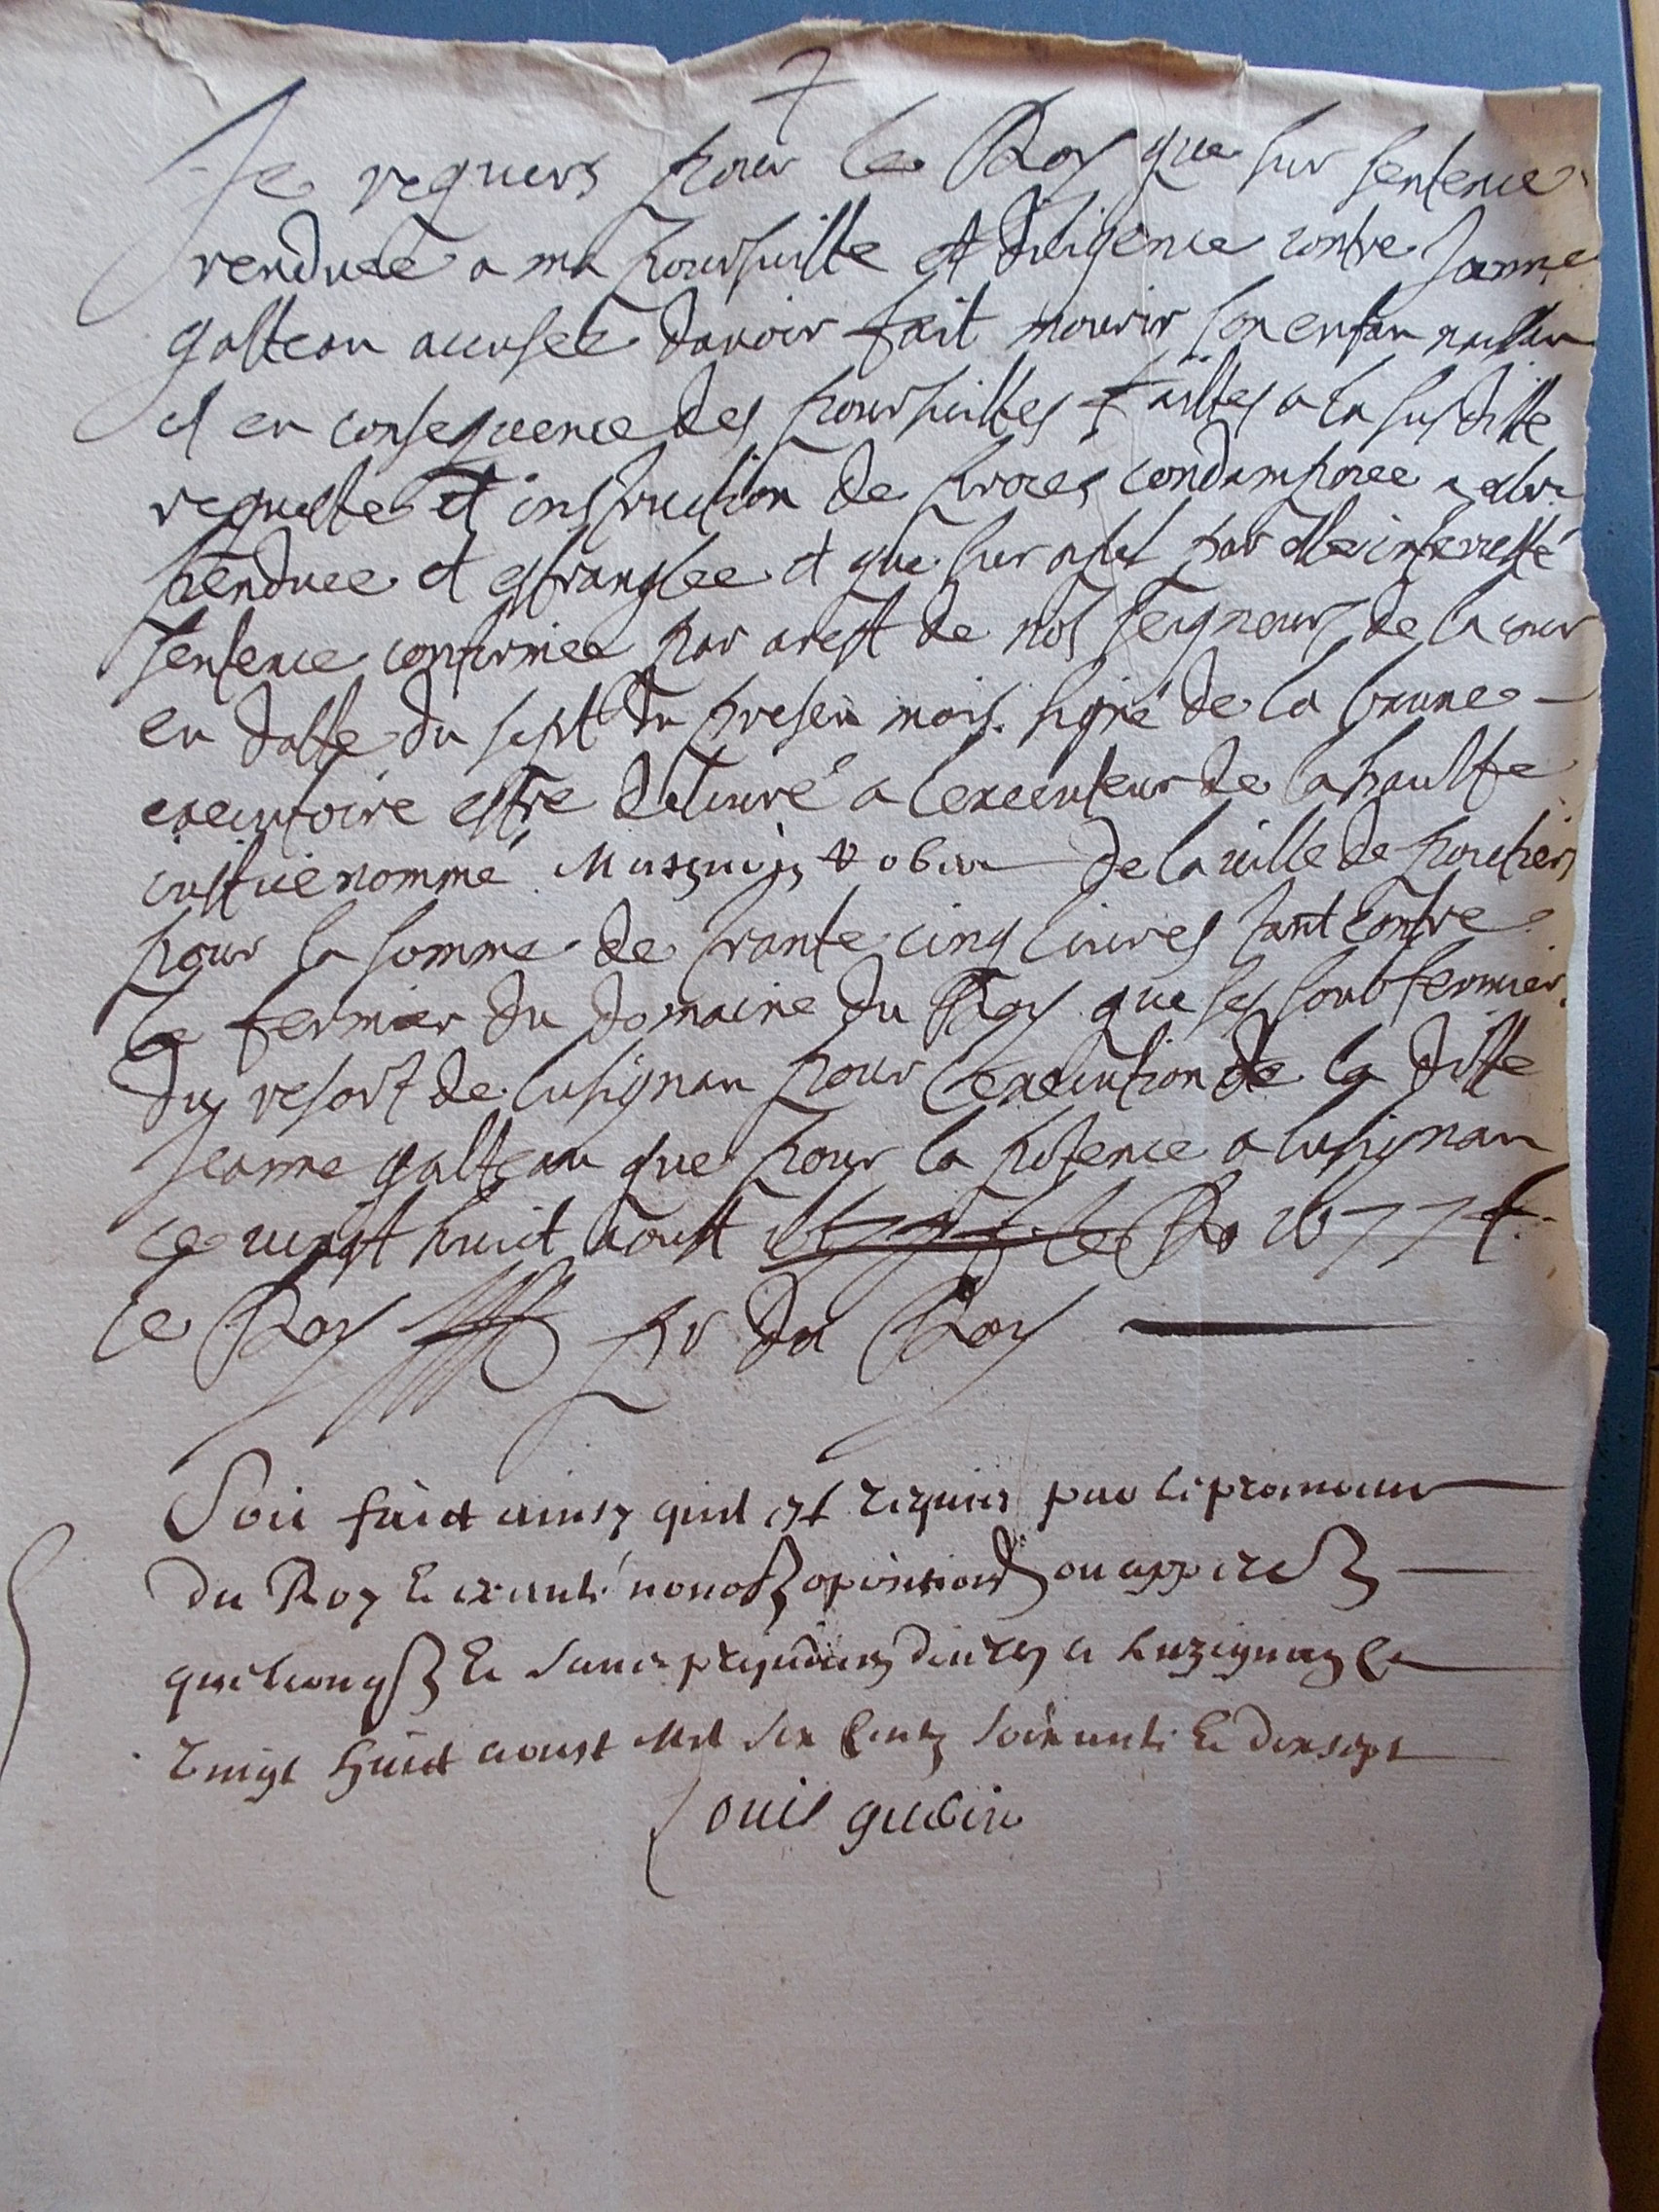 Je requers pour le Roy que sur sentence
renduee a ma poursuitte et diligence contre Jeanne
galteau accusee davoir fait mourir son enfan naissan
et en consequence des poursuittes faittes a la susditte
requeste et instruction de proces condampnee a estre
pendue et estranglee et que sur apel par elle interretté
sentence confirmee par arest de nos seigneurs de la cour
en datte du sept du presen mois signé de la brune
executoire estre delivré a lexecuteur de la haulte
justice nommé de la ville de poictiers
pour la somme de trante cinq livres tant contre
le fermier du domaine du Roy que ses soubfermier
du resort de lusignan pour lexecution de la ditte
Jeanne galteau que pour la potence a lusignan
ce vingt huit aoust 1677
le Roy pr du Roy
Soit faict ainsy quil est requis par le procureur
du Roy Et executé nonobs opositions ou appella
quelconqs Et sans prejudice dicelles a Luzignan le
vingt huict aoust Mil six Cents soixante Et dix sept
Louis guerin